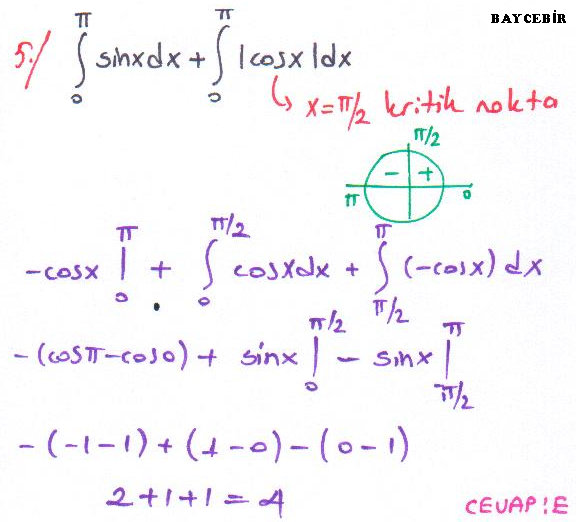 BAYCEBİR
5./ ∫₀^π sinx dx + ∫₀^π |cosx| dx
↳ x=π/2 kritik nokta
π/2
- +
π 0
-cosx |₀^π + ∫₀^{π/2} cosx dx + ∫_{π/2}^π (-cosx) dx
-(cosπ-cos0) + sinx |₀^{π/2} - sinx |_{π/2}^π
-(-1-1)+(1-0)-(0-1)
2+1+1=4
CEVAP:E